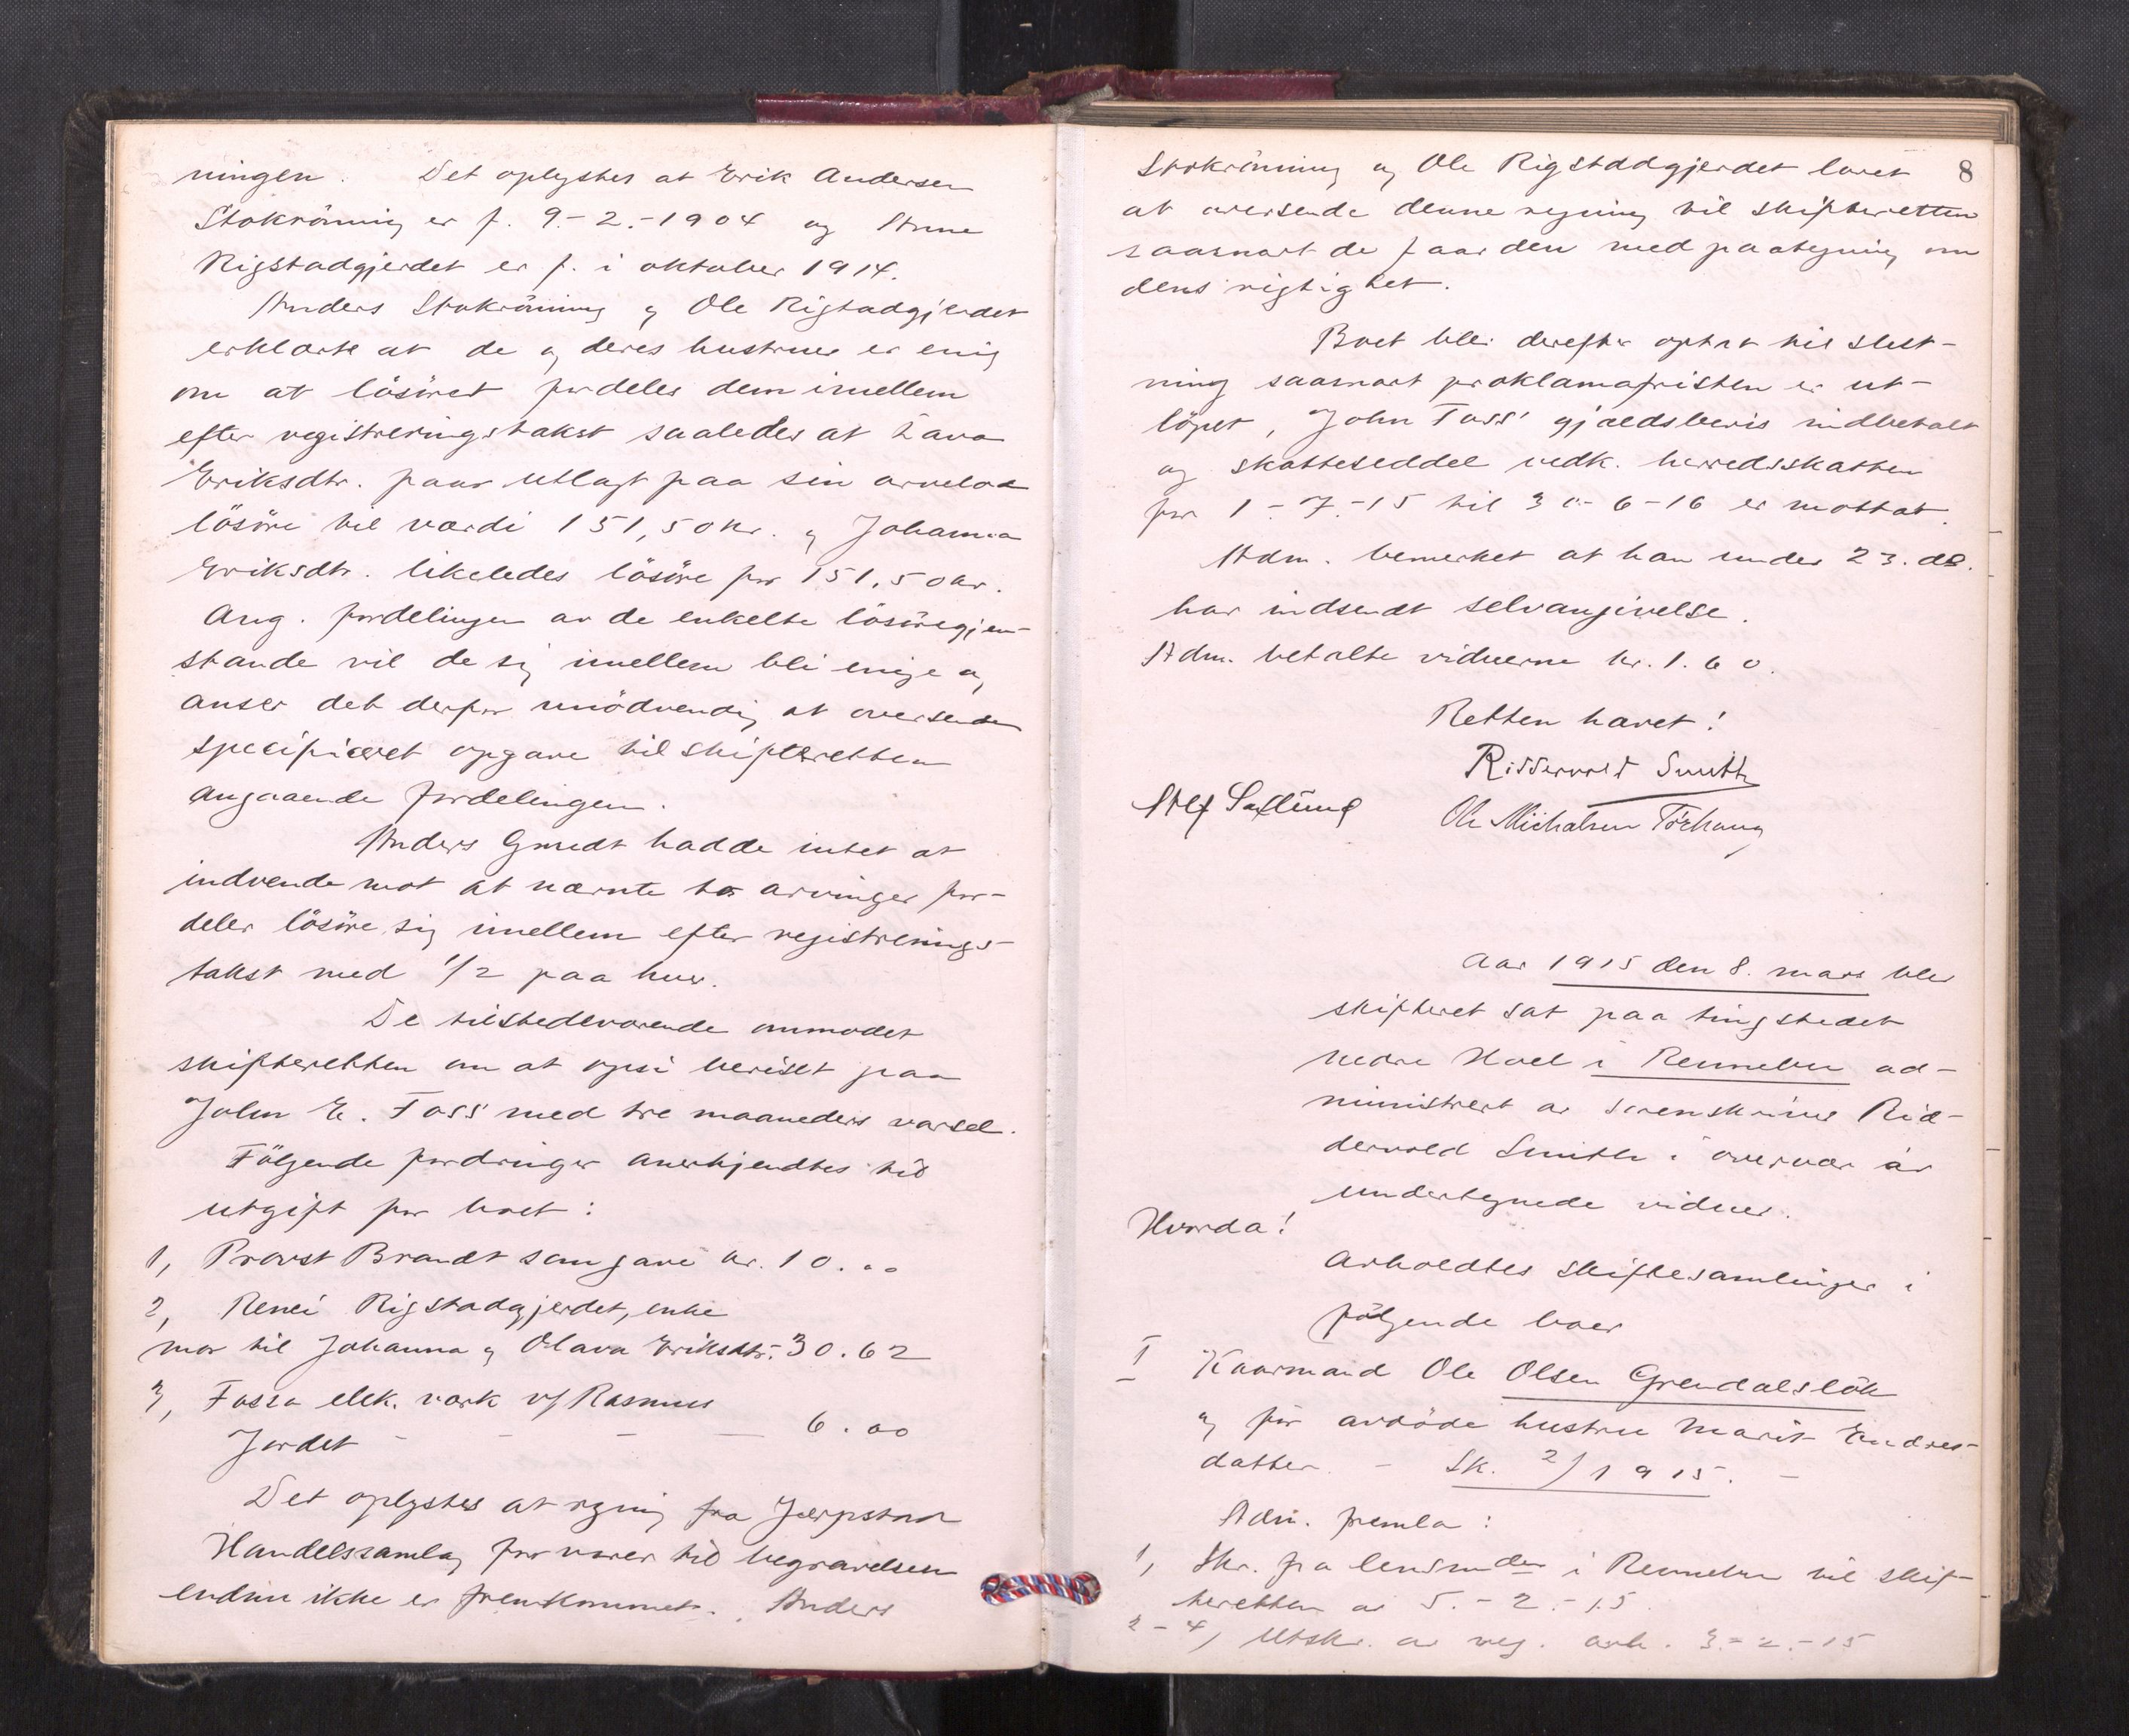 ningen. Det oplystes at Erik Andersen
Stokrönning er f. 9.-2.-1904 og Anne
Rigstadgjerdet er f. i oktober 1914.
Anders Stokrönning og Ole Rigstadgjerdet
erklærte at de og deres hustruer er enig
om at lösöret fordeles dem imellem
efter registreringstakst saaledes at Lava
Eriksdtr. faar utlagt paa sin arvelod
lösöre til værdi 151,50 kr. og Johanna
Eriksdtr. likeledes lösöre for 151.50 kr.
Ang. fordelingen av de enkelte lösöregjen-
stande vil de sig imellem bli enige og
anser det derfor unödvendig at oversende
specificeret opgave til skifteretten
angaaende fordelingen.
Anders Gmedt hadde intet at
indvende mot at nævnte to arvinger for-
deler lösöre sig imellem efter registrerings-
takst med 1/2 paa hver.
De tilstedeværende anmodet
skifteretten om at opsi beviset paa
John E. Foss med tre maaneders varsel.
Fölgende fordringer anerkjendtes til
utgift for boet:
1, Provst Brandt som gave kr. 10.00
2, Renei Rigstadgjerdet, enke
mor til Johanna og Olava Eriksdtr. 30.62
3, Fossa elek. verk v/ Rasmus
Jordet - - - 6.00
Det oplystes at regning fra Jerpstad
Handelssamlag for varer til begravelsen
endnu ikke er fremkommet. Anders
8
Stokrönning og Ole Rigstadgjerdet lovet
at oversende denne regning til skifteretten
saasnart de faar den med paategning om
dens rigtighet.
Boet blev derefter optat til slut-
ning saasnart proklamafristen er ut-
löpet, John Foss' gjældsbevis indbetalt
og skatteseddel vedk. herredsskatten
for 1-7-15 til 30-6-16 er mottat.
Adm. bemerket at han under 23. ds.
har indsendt selvangivelse.
Adm. betalte vidnerne kr. 1.60.
Retten hævet!
Riddervold Smith
Ole Michalsen Törhaug
Aar 1915 den 8. mars blev
skifteret sat paa tingstedet
nedre Hoel i Rennebu ad-
ministrert av sorenskriver Rid-
dervold Smith i overvær av
undertegnede vidner.
Hvorda!
Avholdtes skiftesamlinger i
fölgende boer
I Kaarmand Ole Olsen Grendalslök
og för avdöde hustru Marit Endres-
datter. - Sk. 2/1915. -
Adm. fremla:
1, Skr. fra lensmden i Rennebu til skif-
teretten av 5.-2.-15
2-4, Utskr. av reg. avh. 3.-2.-15